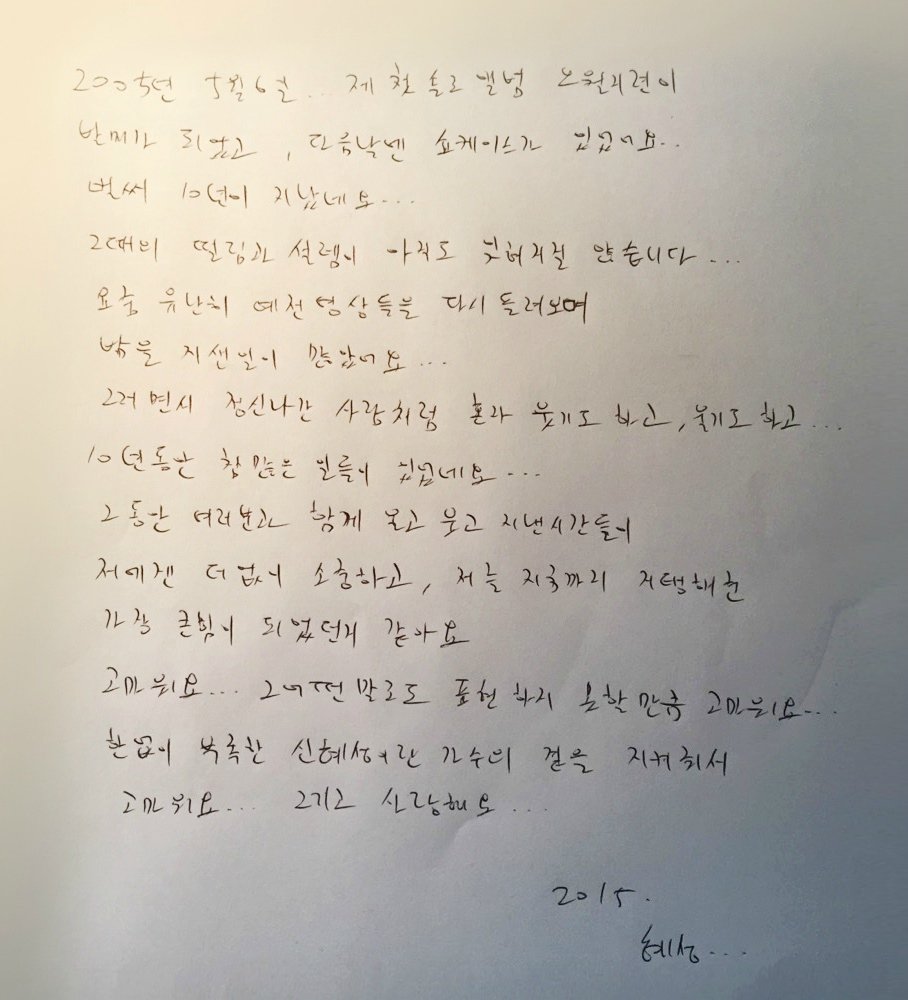 2005년 5월 6일... 제 첫 솔로 앨범 오월지련이
발매가 되었고, 다음날엔 쇼케이스가 있었어요..
벌써 10년이 지났네요...
그때의 떨림과 설렘이 아직도 잊혀지질 않습니다...
요즘 유난히 예전영상들을 다시 돌려보며
밤을 지샌일이 많았어요...
그러면서 정신나간 사람처럼 혼자 웃기도 하고, 울기도 하고...
10년동안 참 많은 일들이 있었네요...
그동안 여러분과 함께 울고 웃고 지낸시간들이
저에겐 더없이 소중하고, 저를 지금까지 지탱해준
가장 큰힘이 되었던거 같아요
고마워요... 그 어떤 말로도 표현 하지 못할만큼 고마워요...
한없이 부족한 신혜성이란 가수의 곁을 지켜줘서
고마워요... 그리고 사랑해요...
2015.
혜성...